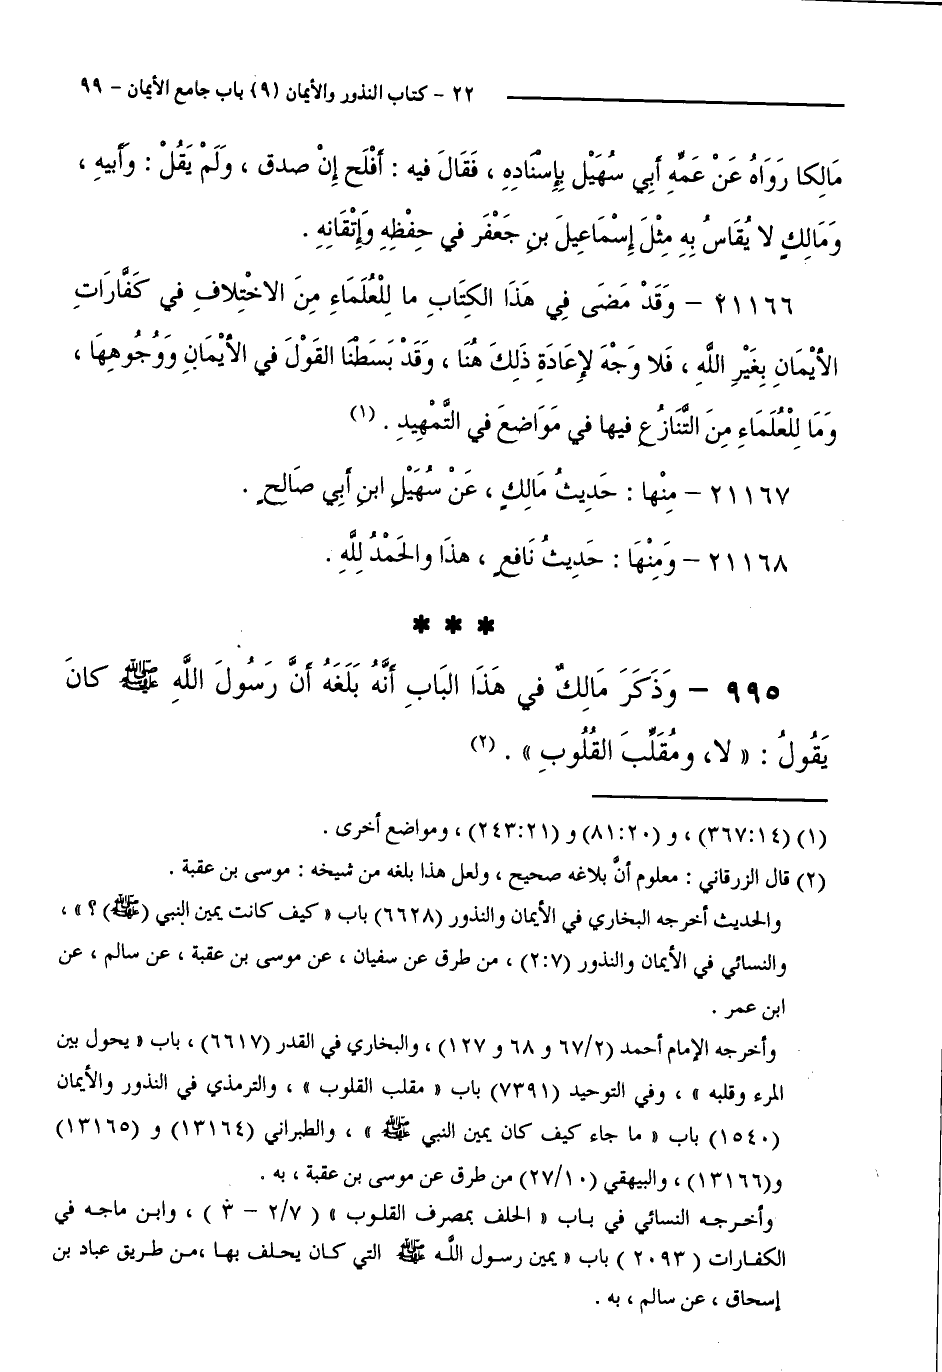 ٢٢ - كتاب النذور والأيمان (٩) باب جامع الأيمان - ٩٩
مَالِكا رَوَاهُ عَنْ عَمِّهِ أبي سُهَيْل بِإِسْنَادِهِ ، فَقَالَ فيه : أفْلَح إنْ صدق ، وَلَمْ يَقُلْ : وأَبيه ،
وَمَالِكٍ لا يُقَاسُ بِهِ مِثْلَ إِسْمَاعِيلَ بنِ جَعْفَر في حِفْظِهِ وَإِتْقَانِهِ .
٢١١٦٦ - وَقَدْ مَضَى فِي هَذَا الكِتَابِ ما لِلْعُلَمَاءِ مِنَ الاخْتِلافِ في كَفَّارَاتِ
الأيْمَانِ بِغَيْرِ اللَّهِ ، فَلا وَجْهَ لإِعَادَةِ ذَلِكَ هُنَا ، وَقَدْ بَسَطْنَا القَوْلَ في الأيْمَانِ وَوُجُوهِهَا ،
وَمَا لِلْعُلَمَاءِ مِنَ التَّنَازُعِ فيها في مَوَاضعَ في التَّمْهِيدِ . (١)
٢١١٦٧ - مِنْها : حَديثُ مَالِكٍ ، عَنْ سُهَيْلِ ابنِ أبي صَالِحٍ .
٢١١٦٨ - وَمِنْهَا : حَديثُ نَافعٍ ، هذَا والحَمْدُ لِلَّهِ .
* * *
٩٩٥ - وَذَكَرَ مَالِكٌ في هَذَا البَابِ أَنَّهُ بَلَغَهُ أنَّ رَسُولَ اللَّهِ ﷺ كانَ
يَقُولُ : « لا، ومُقَلِّبَ القُلُوبِ » . (٢)
(١) (٣٦٧:١٤) ، و (٨١:٢٠) و (٢٤٣:٢١) ، ومواضع أخرى .
(٢) قال الزرقاني : معلوم أنَّ بلاغه صحيح ، ولعل هذا بلغه من شيخه : موسى بن عقبة .
والحديث أخرجه البخاري في الأيمان والنذور (٦٦٢٨) باب « كيف كانت يمين النبي (ﷺ) ؟ » ،
والنسائي في الأيمان والنذور (٢:٧) ، من طرق عن سفيان ، عن موسى بن عقبة ، عن سالم ، عن
ابن عمر .
وأخرجه الإمام أحمد (٦٧/٢ و ٦٨ و ١٢٧) ، والبخاري في القدر (٦٦١٧) ، باب « يحول بين
المرء وقلبه » ، وفي التوحيد (٧٣٩١) باب « مقلب القلوب » ، والترمذي في النذور والأيمان
(١٥٤٠) باب « ما جاء كيف كان يمين النبي ﷺ » ، والطبراني (١٣١٦٤) و (١٣١٦٥)
و(١٣١٦٦) ، والبيهقي (٢٧/١٠) من طرق عن موسى بن عقبة ، به .
وأخرجه النسائي في باب « الحلف بمصرف القلوب » ( ٢/٧ - ٣ ) ، وابن ماجه في
الكفارات ( ٢٠٩٣ ) باب « يمين رسول اللَّه ﷺ التي كان يحلف بها ،من طريق عباد بن
إسحاق ، عن سالم ، به .